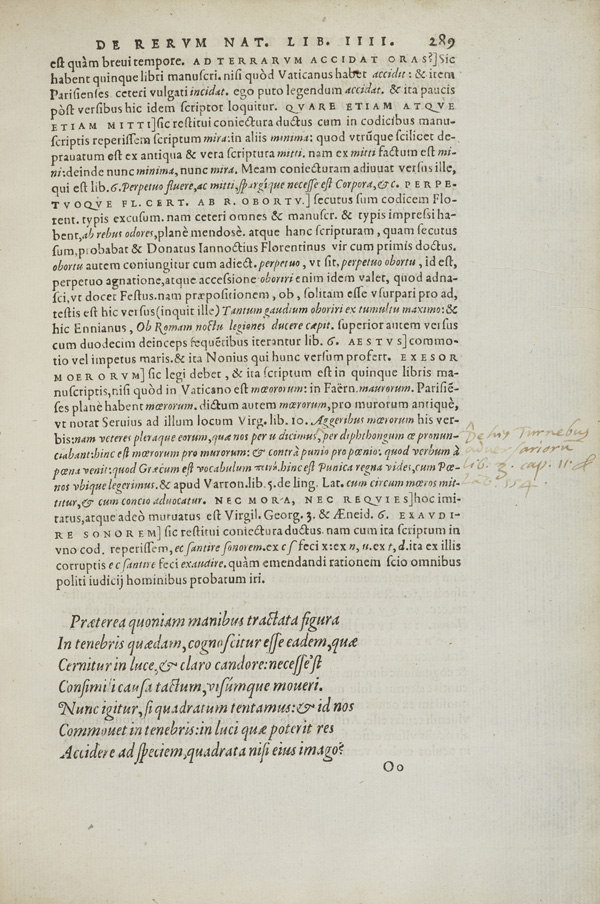 DE RERVM NAT. LIB. IIII. 289
est quàm breui tempore. AD TERRARVM ACCIDAT ORAS?] Sic
habent quinque libri manuscri. nisi quòd Vaticanus habet accidit: & item
Parisienses. ceteri vulgati incidat. ego puto legendum accidat. & ita paucis
pòst versibus hic idem scriptor loquitur. QVARE ETIAM ATQVE
ETIAM MITTI] sic restitui coniectura ductus cum in codicibus manu-
scriptis reperissem scriptum mira: in aliis minima: quod vtrũque scilicet de-
prauatum est ex antiqua & vera scriptura mitti. nam ex mitti factum est mi-
ni: deinde nunc minima, nunc mira. Meam coniecturam adiuuat versus ille,
qui est lib. 6. Perpetuo fluere, ac mitti, spargíque necesse est Corpora, &c. PERPE-
TVOQVE FL. CERT. AB R. OBORTV.] secutus sum codicem Flo-
rent. typis excusum. nam ceteri omnes & manuscr. & typis impressi ha-
bent, ab rebus odores, planè mendosè. atque hanc scripturam, quam secutus
sum, probabat & Donatus Iannoctius Florentinus vir cum primis doctus.
obortu autem coniungitur cum adiect. perpetuo, vt sit. perpetuo obortu, id est,
perpetuo agnatione, atque accessione oboriri enim idem valet, quod adna-
sci, vt docet Festus. nam præpositionem, ob, solitam esse vsurpari pro ad,
testis est hic versus (inquit ille) Tantum gaudium oboriri ex tumultu maximo: &
hic Ennianus, Ob Romam noctu legiones ducere cœpit. superior autem versus
cum duodecim deinceps sequẽtibus iterantur lib. 6. AESTVS] commo-
tio vel impetus maris. & ita Nonius qui hunc versum profert. EXESOR
MOERORVM] sic legi debet, & ita scriptum est in quinque libris ma-
nuscriptis, nisi quòd in Vaticano est mœrorum: in Faërn. maurorum. Parisiẽ-
ses planè habent mœrorum. dictum autem mœrorum, pro murorum antiquè,
vt notat Seruius ad illum locum Virg. lib. 10. Aggeribus mœrorum his ver-
bis: nam veteres pleraque eorum, quæ nos per u dicimus, per diphthongum œ pronun-
ciabant: hinc est mœrorum pro murorum: & contrà punio pro pœnio: quod verbum à
pœna venit: quod Græcum est vocabulum ποινὴ. hinc est Punica regna vides, cum Pœ-
nos vbique legerimus. & apud Varron. lib. 5. de ling. Lat. cum circum mœros mit-
titur, & cum concio aduocatur. NEC MORA, NEC REQVIES] hoc imi-
tatus, atque adeò mutuatus est Virgil. Georg. 3. & Æneid. 6. EXAVDI-
RE SONOREM] sic restitui coniectura ductus. nam cum ita scriptum in
vno cod. reperissem, ec santire sonorem. ex c s feci x: ex n, u. ex t, d. ita ex illis
corruptis ec santire feci exaudire. quàm emendandi rationem scio omnibus
politi iudicij hominibus probatum iri.
Præterea quoniam manibus tractata figura
In tenebris quædam, cognoscitur esse eadem, quæ
Cernitur in luce, & claro candore: necesse'st
Consimili causa tactum, visúmque moueri.
Nunc igitur, si quadratum tentamus: & id nos
Commouet in tenebris: in luci quæ poterit res
Accidere ad speciem, quadrata nisi eius imago?
Oo
De his Turnebus
aduersariorũ
lib. 3. cap. 11. &